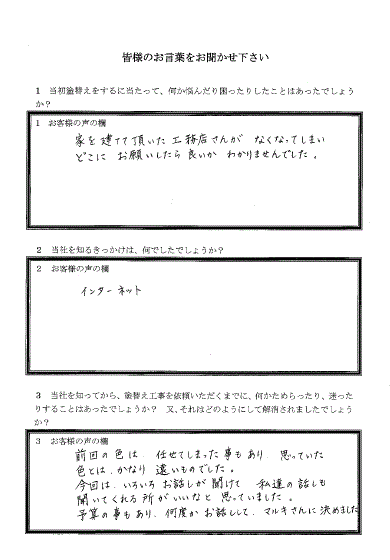 皆様のお言葉をお聞かせ下さい
1 当初塗替えをするに当たって、何か悩んだり困ったりしたことはあったでしょう
か？
1 お客様の声の欄
家を建てて頂いた工務店さんが なくなってしまい
どこに お願いしたら良いか わかりませんでした。
2 当社を知るきっかけは、何でしたでしょうか？
2 お客様の声の欄
インターネット
3 当社を知ってから、塗替え工事を依頼いただくまでに、何かためらったり、迷った
りすることはあったでしょうか？ 又、それはどのようにして解消されましたでしょう
か？
3 お客様の声の欄
前回の色は、任せてしまった事もあり、思っていた
色とは、かなり 違いものでした。
今回は、いろいろ お話しが聞けて 私達の話しも
聞いてくれる所がいいなと思っていました。
予算の事もあり、何度かお話しして、マルキさんに決めました